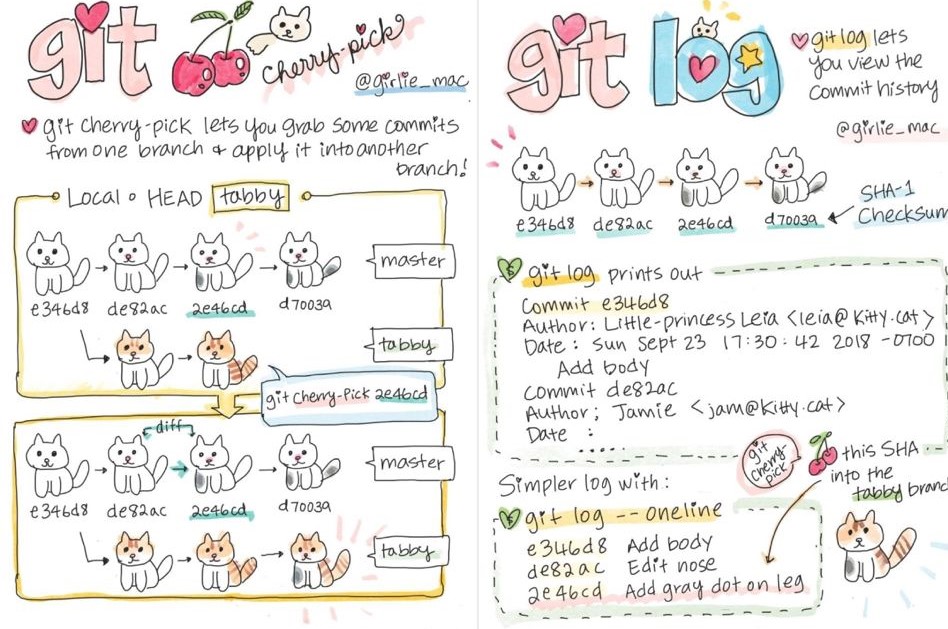 git
cherry-pick
@girlie_mac
git cherry-pick lets you grab some commits
from one branch & apply it into another
branch!
Local • HEAD tabby
master
e346d8 de82ac 2e46cd d70039
tabby
git cherry-pick 2e46cd
diff
master
e346d8 de82ac 2e46cd d70039
tabby
git log
git log lets
you view the
commit history
@girlie_mac
e346d8 de82ac 2e46cd d70039
SHA-1
Checksum
git log prints out
Commit e346d8
Author: Little-princess Leia <leia@kitty.cat>
Date: Sun Sept 23 17:30:42 2018 -0700
Add body
commit de82ac
Author; Jamie <jam@kitty.cat>
Date :
.....
git
cherry
pick
this SHA
into the
tabby branch
Simpler log with:
git log --oneline
e346d8 Add body
de82ac Edit nose
2e46cd Add gray dot on leg